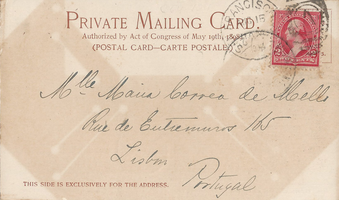 PRIVATE MAILING CARD
Authorized by Act of Congress of May 19th, 1898.
(POSTAL CARD—CARTE POSTALE)
Mlle Maria Correa de Mello
Rua de Entremuros 165
Lisbon
Portugal
THIS SIDE IS EXCLUSIVELY FOR THE ADDRESS.